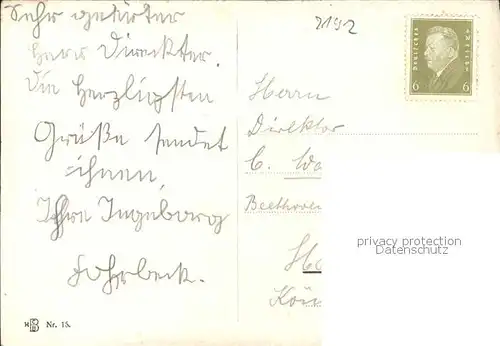 Sehr geehrter
Herr Direktor.
Die herzligsten
Grüße sendet
ihnen,
Ihre Ingeborg
Fohrbeck.
Nr. 15.
2192
Deutsches Reich
6 6
Herrn
Direktor
C. Wa
Beethoven
Ha
Kön
privacy protection
Datenschutz